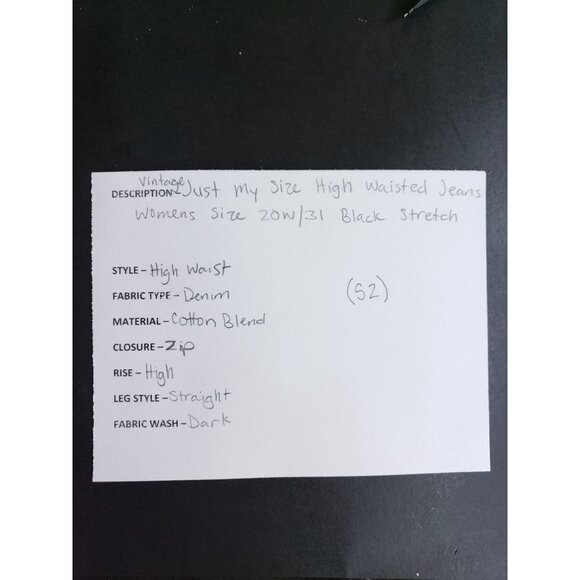 Vintage
DESCRIPTION- Just My Size High Waisted Jeans
Womens Size 20W/31 Black Stretch
STYLE – High Waist
FABRIC TYPE – Denim
(52)
MATERIAL – Cotton Blend
CLOSURE – Zip
RISE – High
LEG STYLE – Straight
FABRIC WASH – Dark